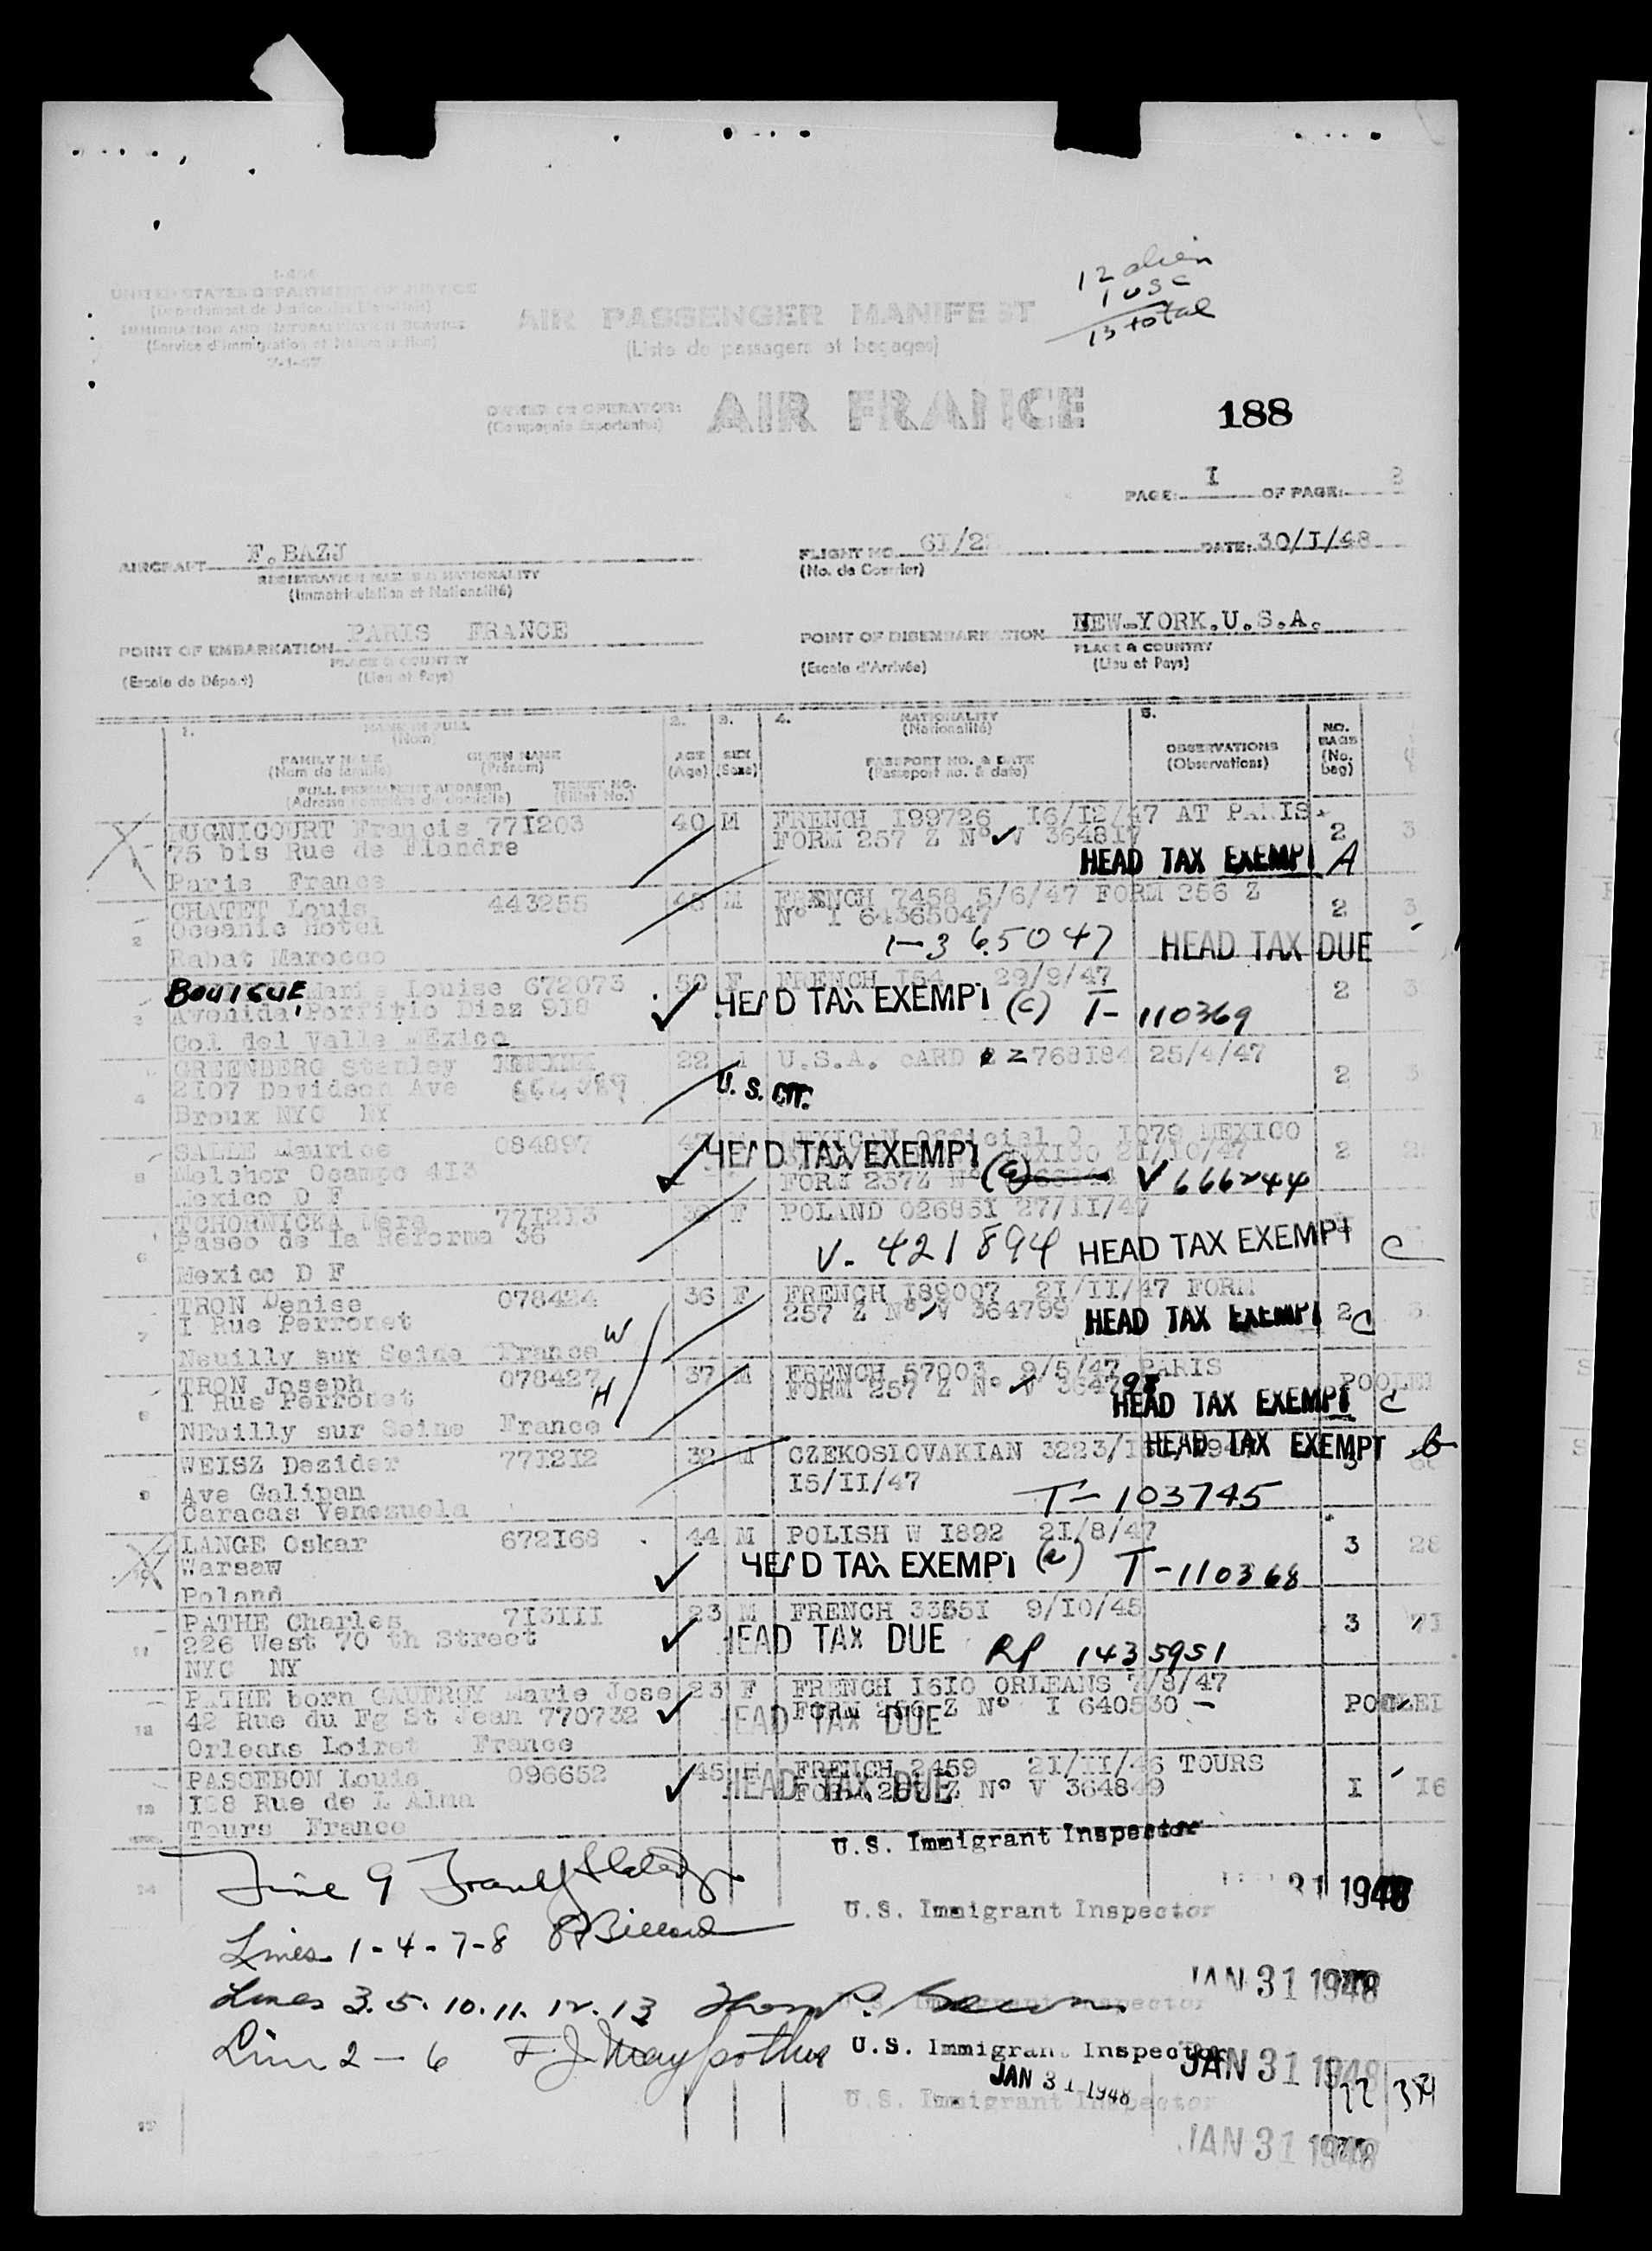 12 alien
1 USC
13 total
I-466
UNITED STATES DEPARTMENT OF JUSTICE
(Département de Justice des
IMMIGRATION AND NATURALIZATION SERVICE
(Service d'immigration et Naturalisation)
AIR PASSENGER MANIFEST
(Liste de passagers et bagages)
OWNER OR OPERATOR:
(Compagnie Exportante)
AIR FRANCE
188
PAGE: I OF PAGE: 3
AIRCRAFT F.BAZJ
REGISTRATION MARKS & NATIONALITY
(Immatriculation et Nationalité)
FLIGHT NO. 61/2 DATE: 30/I/48
(No. de Courrier)
POINT OF EMBARKATION PARIS FRANCE
PLACE & COUNTRY
(Escale de Départ) (Lieu et Pays)
POINT OF DISEMBARKATION NEW-YORK.U.S.A.
PLACE & COUNTRY
(Escale d'Arrivée) (Lieu et Pays)
1. NAME IN FULL 2. 3. 4. NATIONALITY 5. NO. BAGS
(Nom) (Nationalité) (No. bag)
FAMILY NAME GIVEN NAME AGE SEX PASSPORT NO. & DATE OBSERVATIONS
(Nom de famille) (Prénom) (Age) (Sexe) (Passeport no. & date) (Observations)
FULL PERMANENT ADDRESS TICKET NO.
(Adresse complète du domicile) (Billet No.)
BUGNICOURT Francis 771203 40 M FRENCH I99726 I6/I2/47 AT PARIS 2 3
75 bis Rue de Flandre FORM 257 Z Nº V 364817
HEAD TAX EXEMPT A
Paris France
2 CHATET Louis 443255 48 M FRENCH 7458 5/6/47 FORM 256 Z 2 3
Oceanic Hotel Nº I 64365047
1-365047 HEAD TAX DUE
Rabat Marocco
3 BOUIGUE Marie Louise 672073 50 F FRENCH I54 29/9/47 2 3
Avenida Porfirio Diaz 918 HEAD TAX EXEMPT (C) T-110369
Col del Valle MExico
4 GREENBERG Stanley 22 M U.S.A. cARD Z 768184 25/4/47 2 3
2I07 Davidson Ave U.S. CIT.
Broux NYC NY
5 SALLE Maurice 084897 MEXICAN Official O I079 MEXICO 2
Melchor Ocampo 4I3 HEAD TAX EXEMPT MEXICO 21/10/47
Mexico D F FORM 257Z Nº V 666244
6 TCHORNICKA Wera 771213 F POLAND 026851 27/11/47
Paseo de la Reforma 35 V-421894 HEAD TAX EXEMPT C
Mexico D F
7 TRON Denise 078424 36 F FRENCH I89007 2I/II/47 FORM
I Rue Perronet 257 Z Nº V 364799 HEAD TAX EXEMPT 2 C
Neuilly sur Seine France W
8 TRON Joseph 078427 37 M FRENCH 57003 9/5/47 PARIS POOLED
I Rue Perronet H FORM 257 Z Nº V 364798
HEAD TAX EXEMPT C
NEuilly sur Seine France
9 WEISZ Dezider 77I2I2 32 M CZEKOSLOVAKIAN 3223/ HEAD TAX EXEMPT b
Ave Galipan I5/II/47
Caracas Venezuela T-103745
10 LANGE Oskar 672I68 44 M POLISH W I892 2I/8/47 3 28
Warsaw HEAD TAX EXEMPT (a) T-110368
Poland
11 PATHE Charles 7I3III 23 M FRENCH 33551 9/IO/45 3
226 West 70 th Street HEAD TAX DUE RP 1435951
NYC NY
12 PATHE born GAUFROY Marie Jose 23 F FRENCH I6IO ORLEANS 7/8/47
42 Rue du Fg St Jean 770732 HEAD TAX DUE FORM 256 Z Nº I 640530 - POOLED
Orleans Loiret France
13 PASSEBON Louis 096652 45 M FRENCH 2459 2I/II/46 TOURS I I6
I38 Rue de L Alma HEAD TAX DUE FORM 257 Z Nº V 364849
Tours France
U.S. Immigrant Inspector
Line 9
31 1948
U.S. Immigrant Inspector
Lines 1-4-7-8
JAN 31 1948
Lines 3.5.10.11.12.13
U.S. Immigrant Inspector
Line 2-6
U.S. Immigrant Inspector
JAN 31 1948
JAN 31 1948
22
U.S. Immigrant Inspector
JAN 31 1948